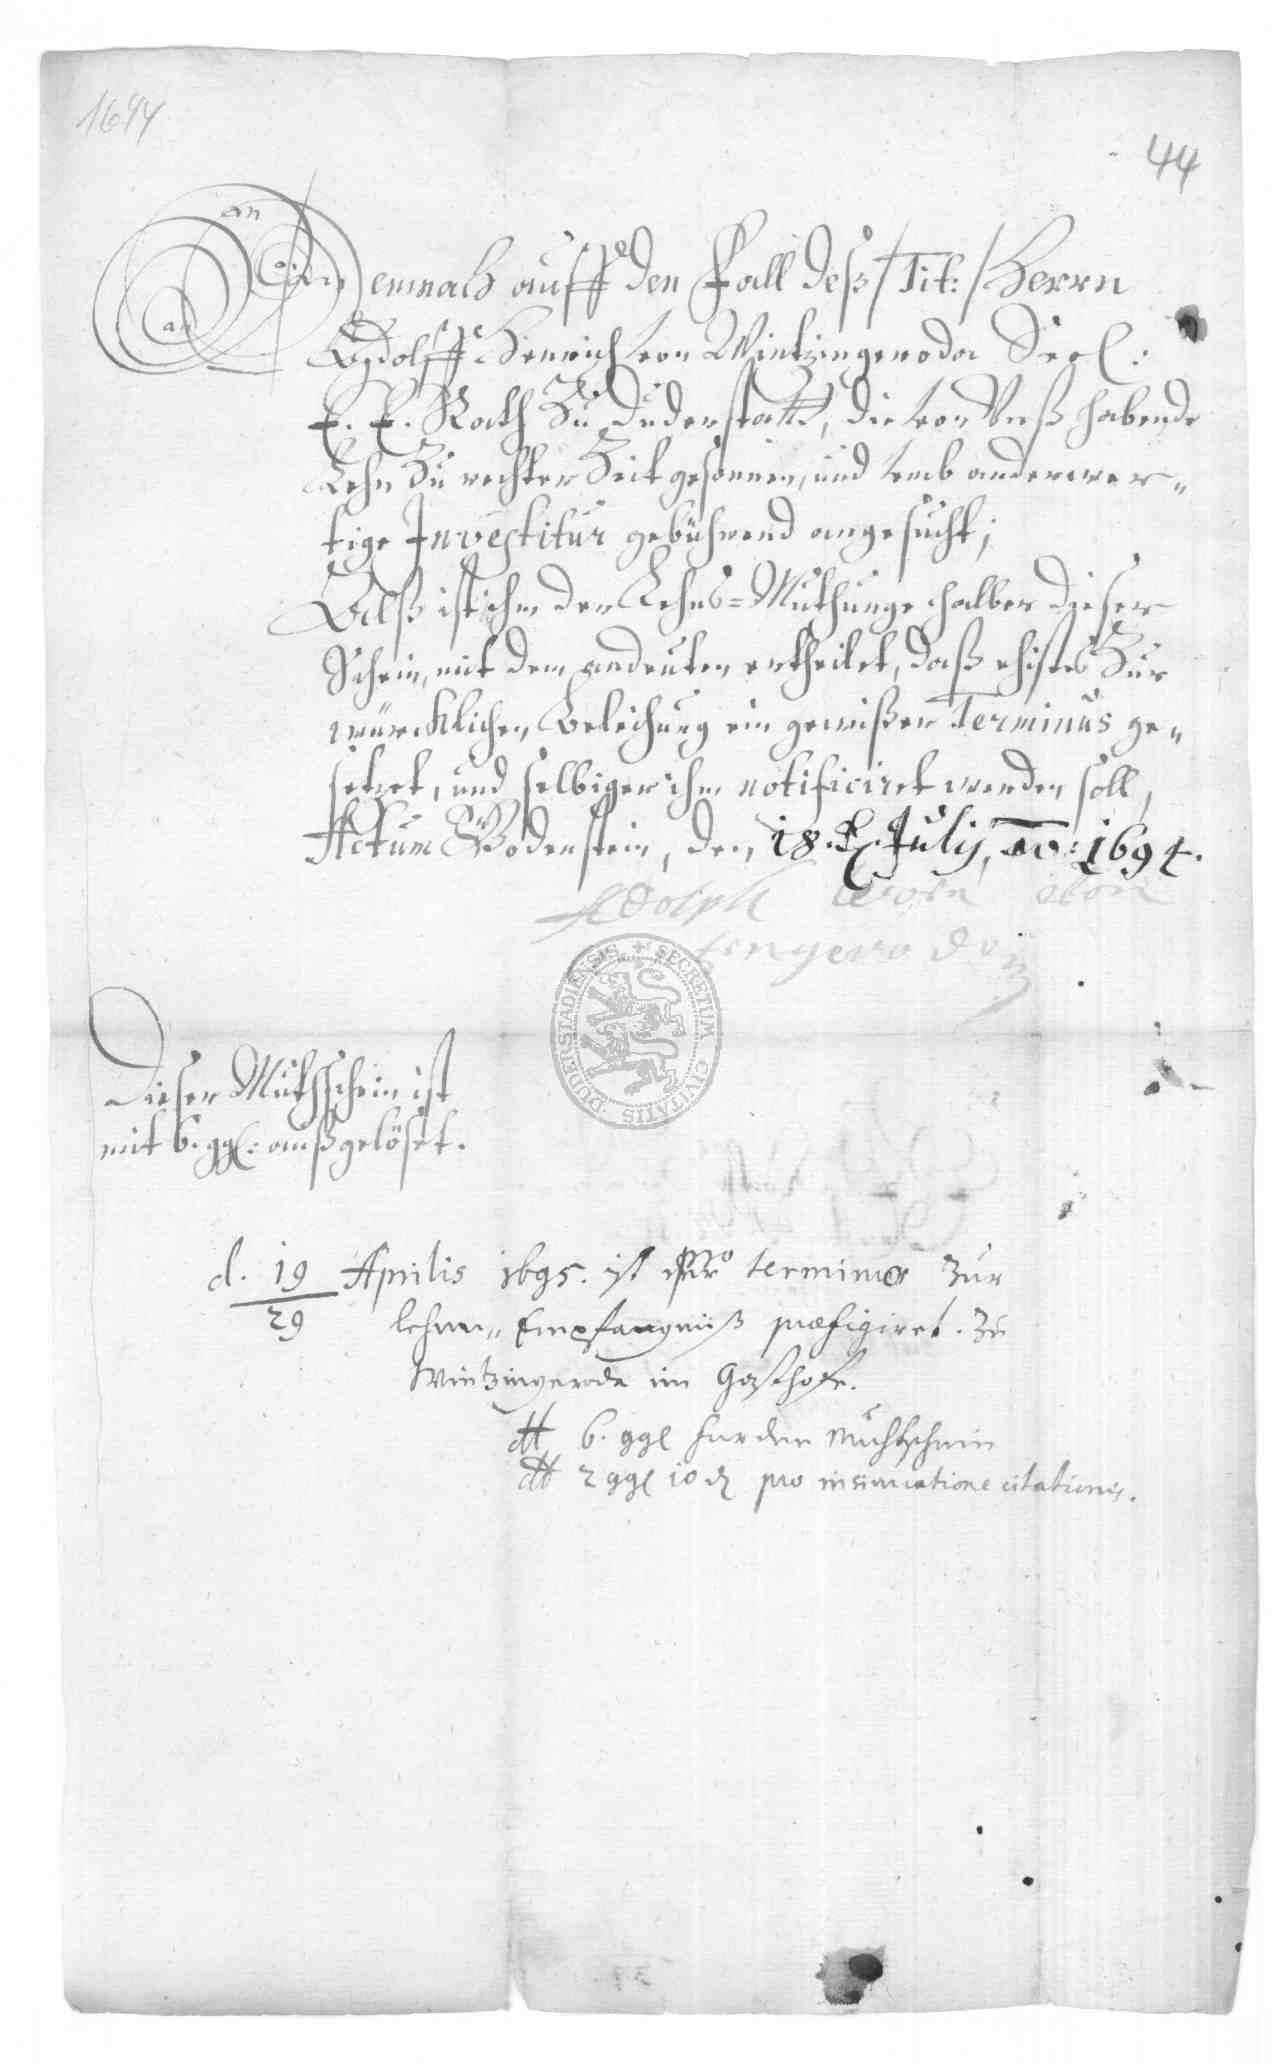 1694
44
Demnach auff den Fall deß /Tit:/ Herrn
Adolff Henrich von Wintzingeroda Seel:
E. E. Rath Zu Duderstatt, die von Unß habende
Lehn Zu rechter Zeit gesonnen, und umb anderwer-
tige Investitur gebührend angesucht;
Alß ist ihm der Lehns-Muthunge halber dieser
Schein, mit dem andeuten ertheilet, daß ehistes Zur
würcklichen Beleihung ein gewißer Terminus ge-
setzet, und selbiger ihm notificiret werden soll,
Actum Bodenstein, den 18. Julij, ao: 1694.
Adolph von
Dieser Muthschein ist
mit 6. ggl: außgelöset.
d. 19/29 Aprilis 1695. ist pro termino zur
lehnen Empfängniß præfigiret. zu
Wintzingerode im Gasthofe.
dt 6. ggl für den Muthschein
dt 2 ggl 10 d pro insinuatione citationis.
SECRETUM CIVITATIS DUDERSTADIENSIS